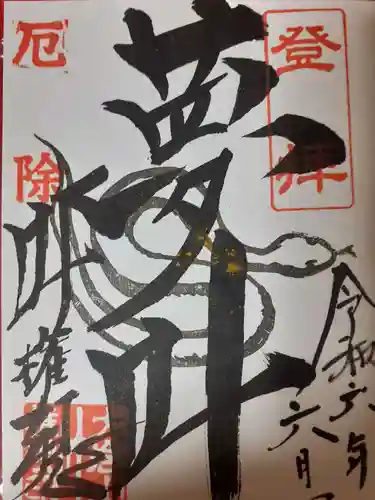 登拝
令和六年
六月
夢叶
厄除
叶権現